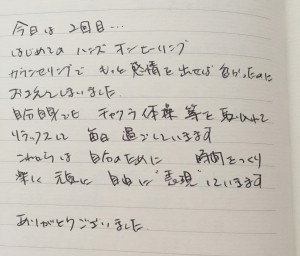 今日は2回目…
はじめての ハンズ オン ヒーリング
カウンセリングで もっと 感情を出せば 良かったのに
おさえてしまいました
自分自身で チャクラ体操 等を 取り入れて
リラックスして 毎日 過ごしていきます
これからは 自分のために 時間をつくり
深く 元気に 自由に "表現" していきます
ありがとうございました